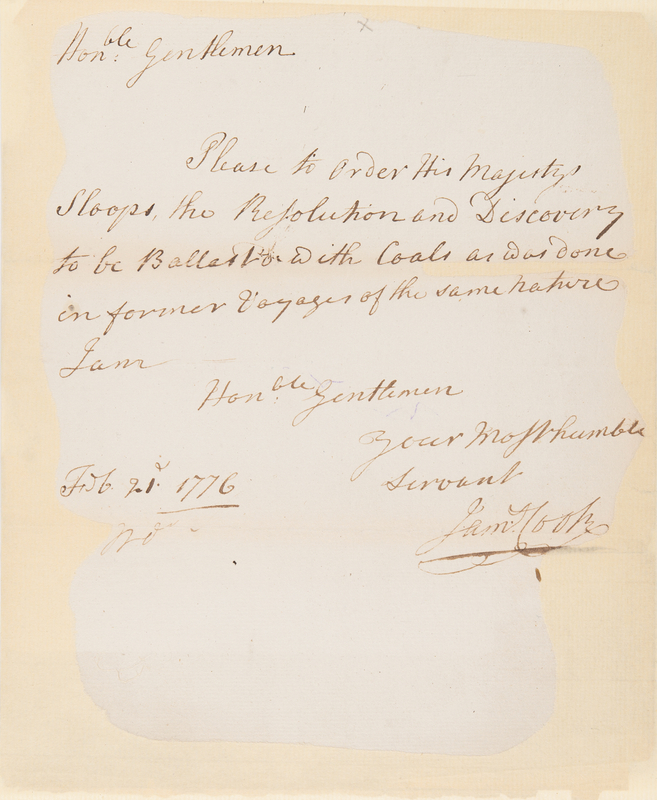 Hon.ble Gentlemen
Please to order His Majestys
Sloops, the Resolution and Discovery
to be Ballast'd with Coals as was done
in former Voyages of the same nature
I am
Hon.ble Gentlemen
Your Most humble
Servant
Feb. 21st 1776
Jams Cook